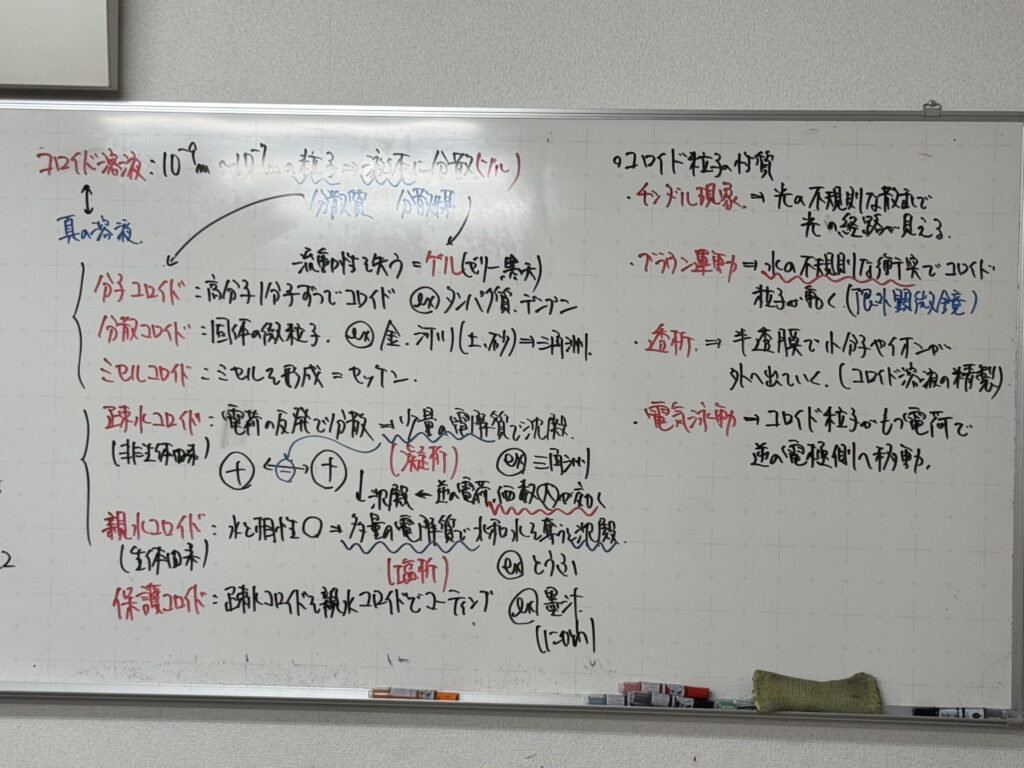 コロイド溶液:10⁻⁹m~10⁻⁷mの粒子⇒液体に分散(ゾル)
分散質 分散媒
真の溶液
流動性を失う=ゲル(ゼリー、寒天)
分子コロイド:高分子1分子ずつでコロイド ex タンパク質、デンプン
分散コロイド:固体の微粒子. ex 金、河川(土、砂)⇒三角洲.
ミセルコロイド:ミセルを形成=セッケン.
疎水コロイド:電荷の反発で分散→少量の電解質で沈殿.
(非生体由来) (凝析) ex 三角洲
+ ← - → +
沈殿 ← 逆の電荷、価数大が効く
親水コロイド:水と相性○→多量の電解質で水和水を奪うと沈殿.
(生体由来) (塩析) ex とうふ
保護コロイド:疎水コロイドを親水コロイドでコーティング ex 墨汁
(にかわ)
2
○コロイド粒子の性質
・チンダル現象→光の不規則な散乱で
光の経路が見える.
・ブラウン運動→水の不規則な衝突でコロイド
粒子が動く(限外顕微鏡)
・透析.⇒半透膜で小分子やイオンが
外へ出ていく.(コロイド溶液の精製)
・電気泳動→コロイド粒子がもつ電荷で
逆の電極側へ移動.